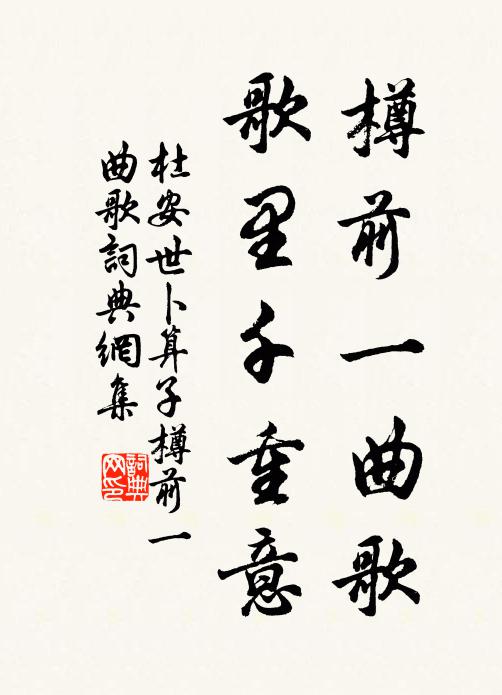 樽前一曲歌
歌里千重意
杜安世卜算子樽前一
曲歌詞典網集
詞典
网印